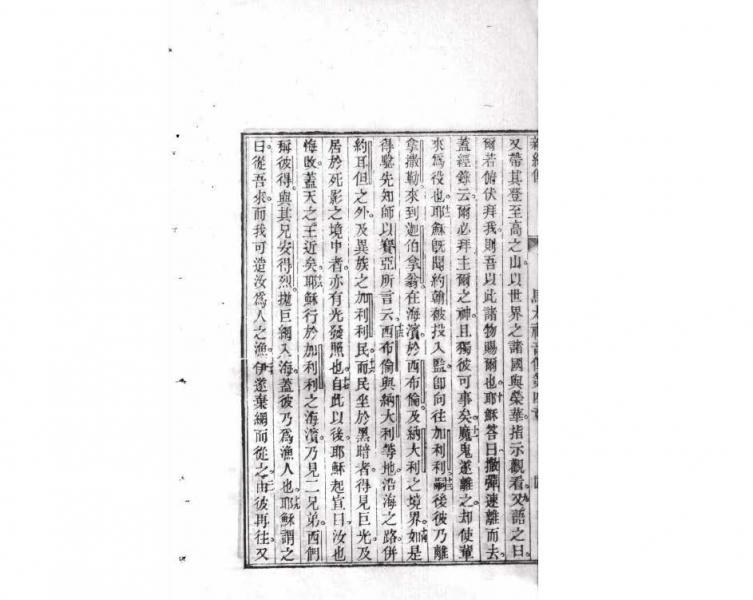 又帶其登至高之山以世界之諸國與榮華指示觀看。又語之曰。
爾若俯伏拜我則吾以此諸物賜爾也耶穌答曰撒彈速離而去
蓋經錄云爾必拜主爾之神且獨彼可事矣魔鬼遂離之却使輩
來爲役也耶穌旣聞約翰被投入監卽向往加利利嗣後彼乃離
拿撒勒來到迦伯拿翁在海濱於西布倫及納大利之境界如是
得驗先知師以賽亞所言云西布倫與納大利等地沿海之路併
約耳但之外及異族之加利利民而民坐於黑暗者得見巨光及
居於死影之境中者亦有光發照也自此以後耶穌起宣曰汝也
悔改蓋天之王近矣耶穌行於加利利之海濱乃見二兄弟西們
稱彼得與其兄安得烈。拋巨網入海蓋彼乃爲漁人也耶穌謂之
曰從吾來而我可造汝爲人之漁伊遂棄網而從之由彼再往又